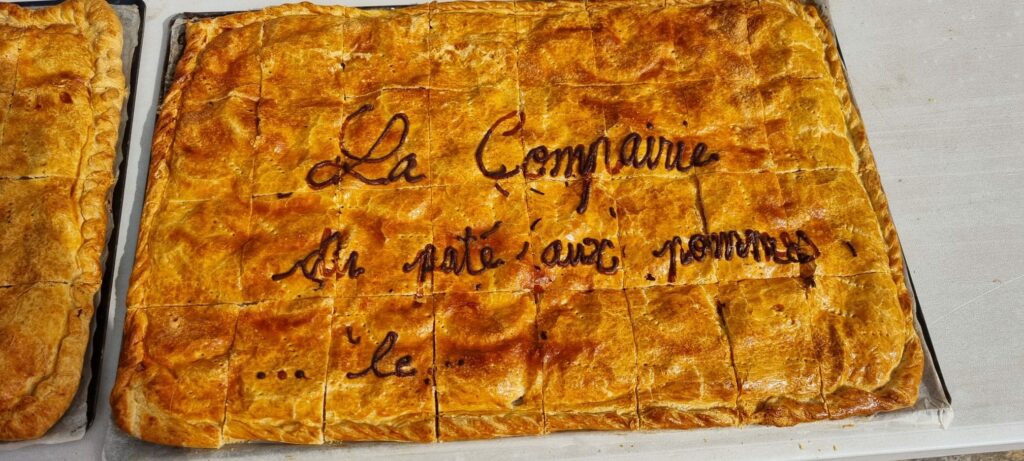 La Compairie
du paté aux pommes
... le ...